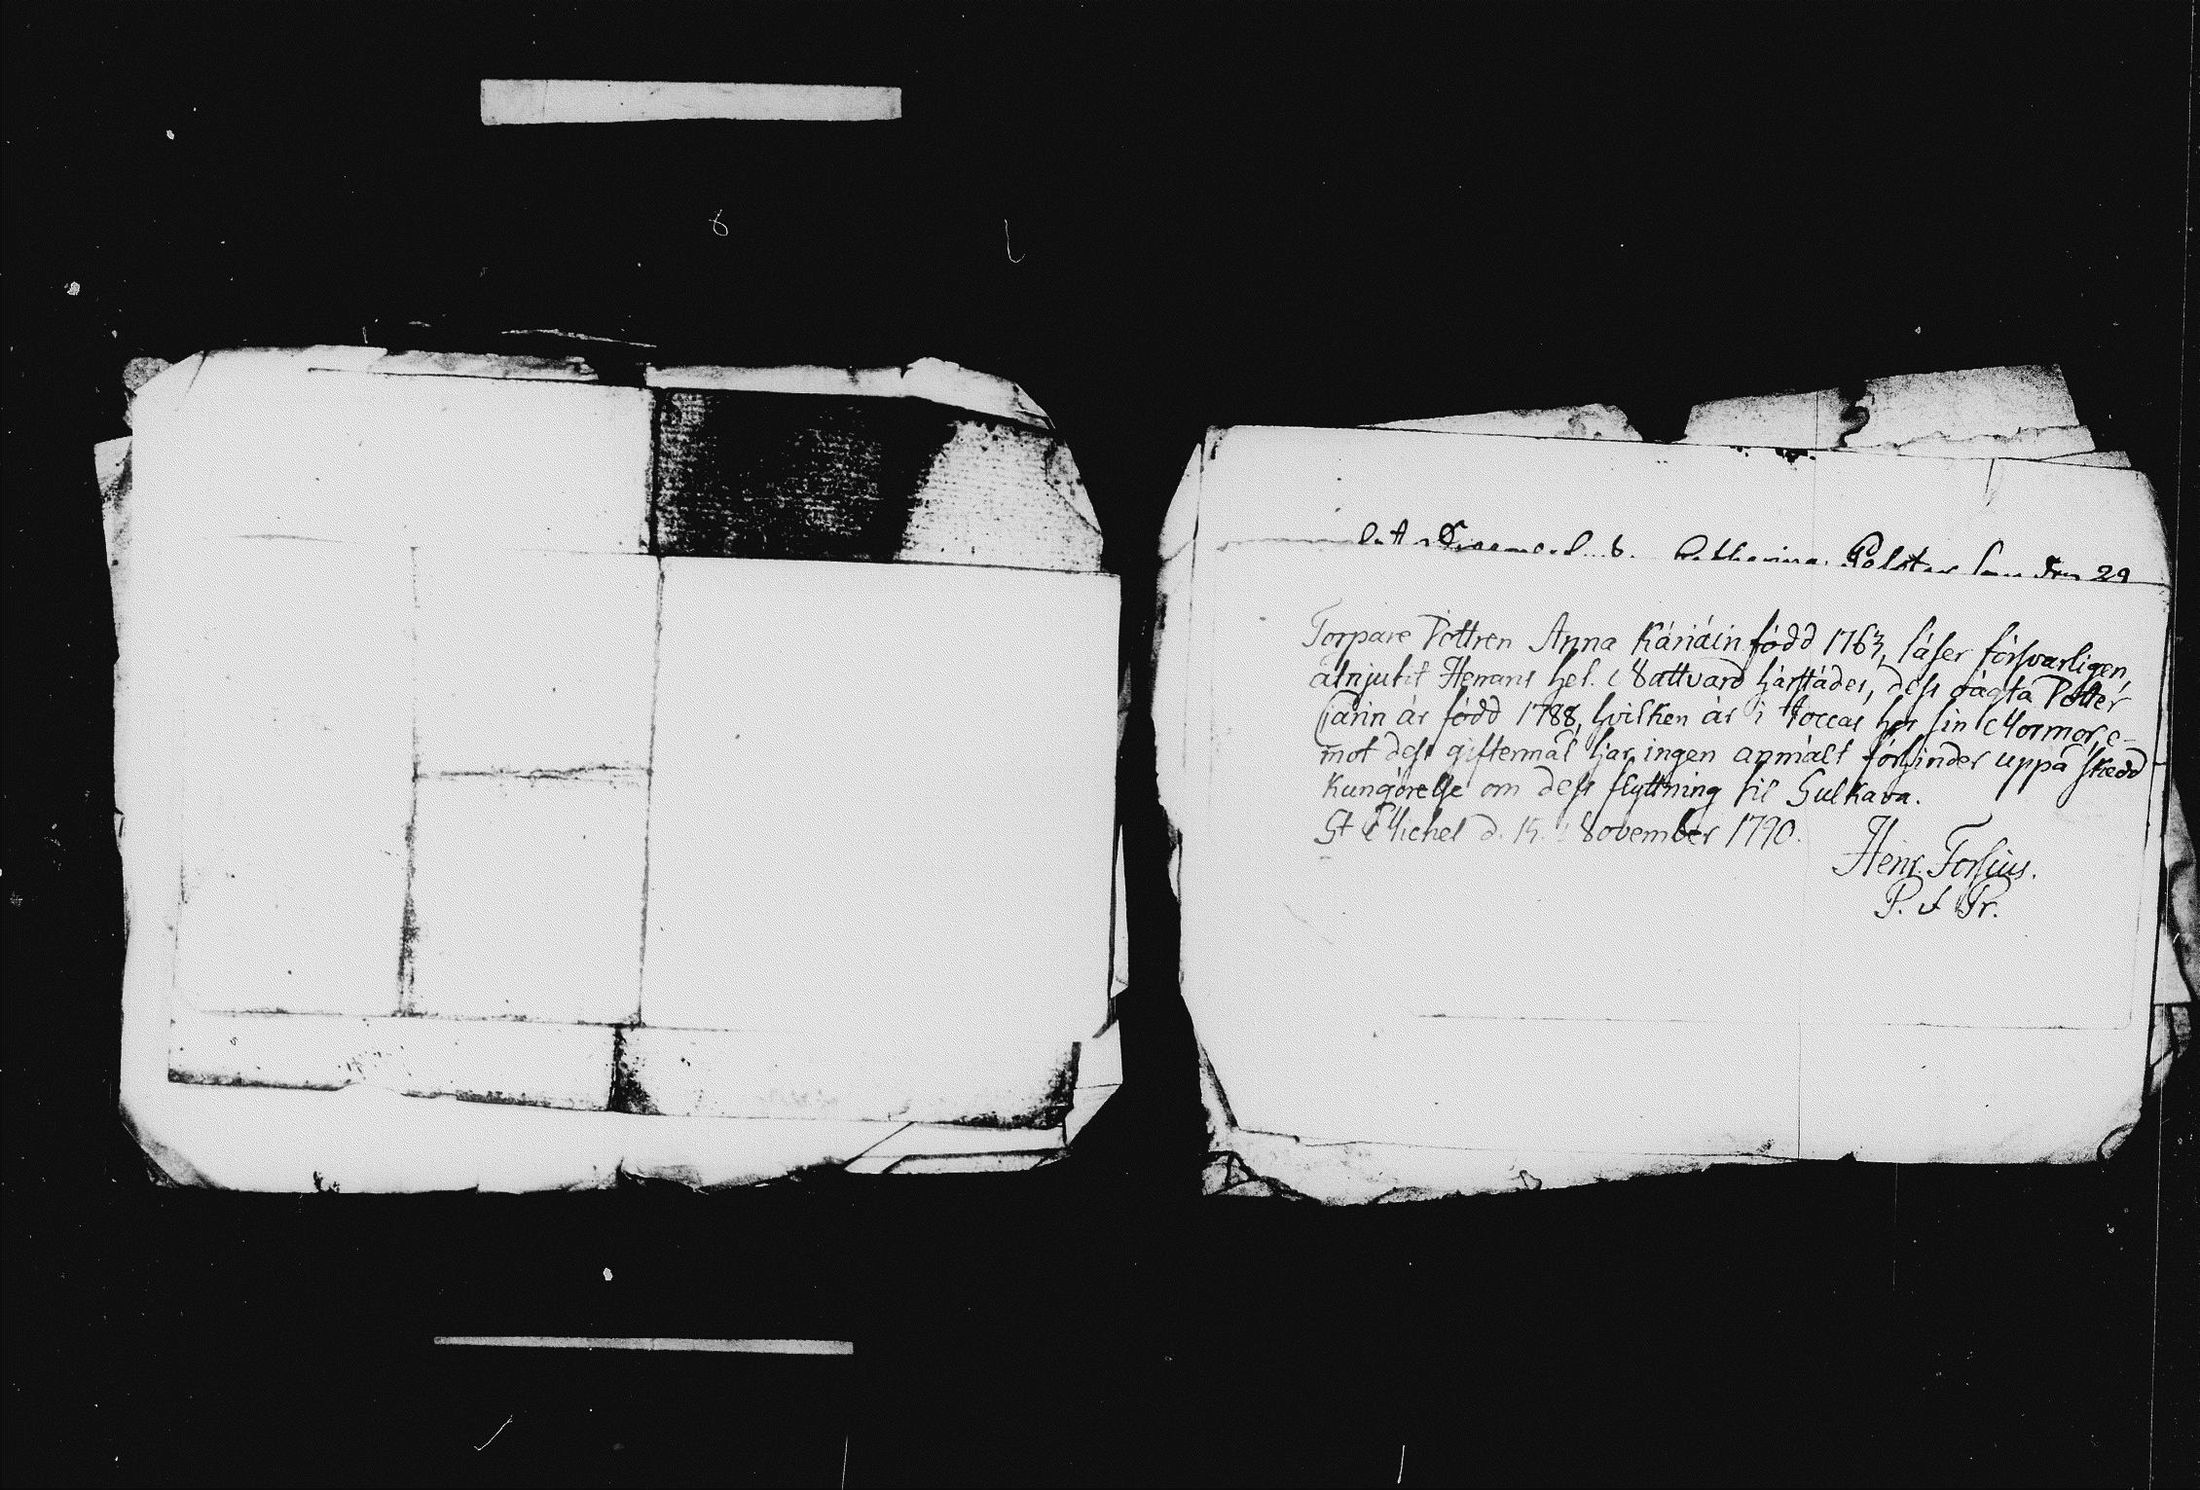 Catharina Polster 29
Torpare Dottren Anna Käriäin född 1763, läser försvarligen,
åtnjutit Herrans hel. Nattvard härstädes, dess oägta Dotter
Carin är född 1788, hvilken är i Joccas hos sin Mormor, e-
mot dess giftermål har ingen anmält förhinder uppå skedd
kungörelse om dess flyttning til Sulkava.
St Michel d. 15 November 1790.
Henr. Forsius.
P. & Pr.